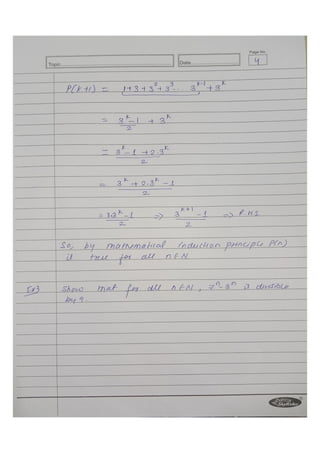 Page No.
Topic Date 4
P(k+1) = 1+3+3²+3³... 3^(k-1)+3^k
= 3^k-1 / 2 + 3^k
= 3^k-1+2.3^k / 2
= 3^k+2.3^k-1 / 2
= 3.3^k-1 / 2 => 3^(k+1)-1 / 2 => R.H.S
So, by mathematical induction principle P(n)
is true for all n∈N
show that for all n∈N, 7^n-3^n is divisible
by 4.